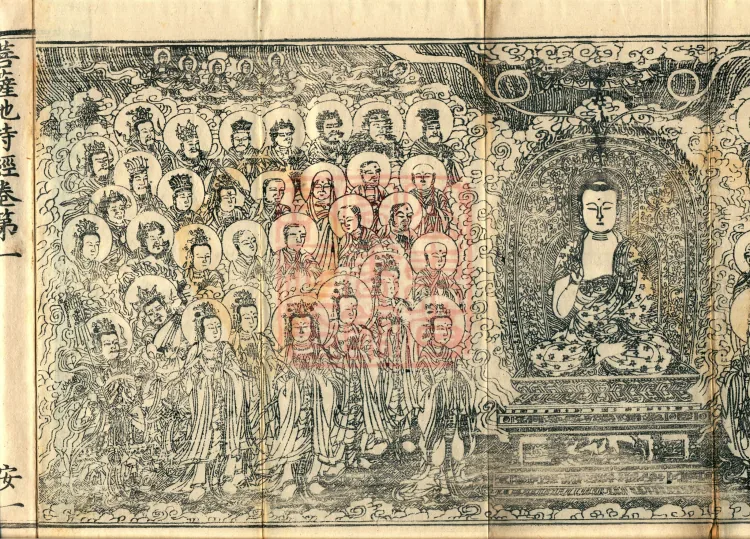 菩薩地持經卷第一
安一